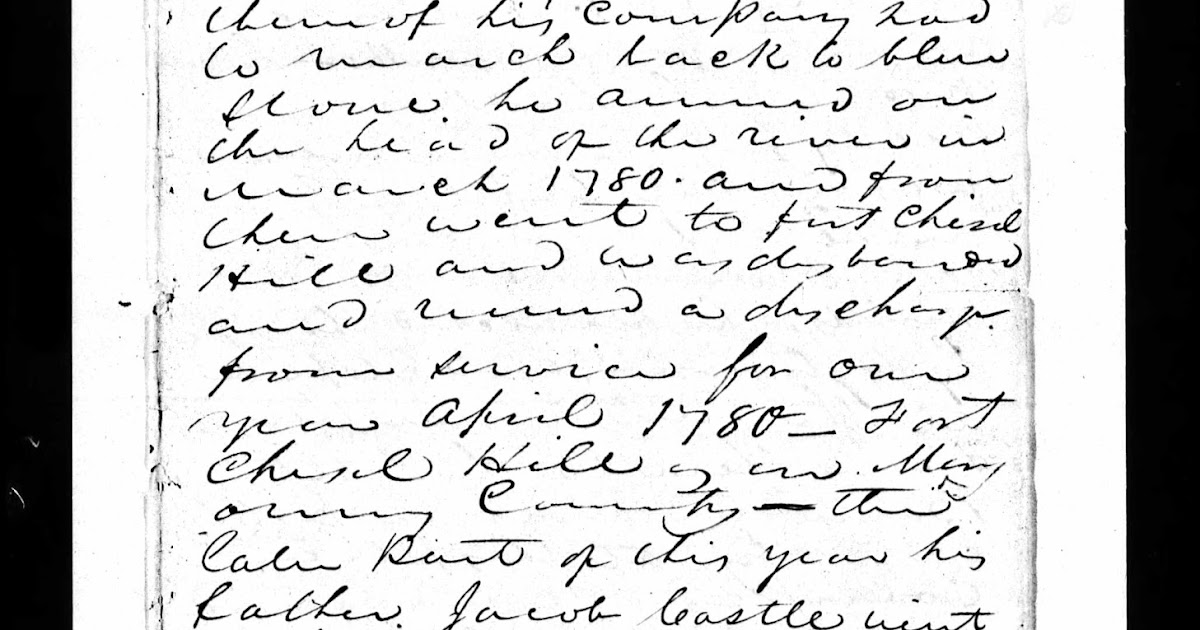 them of his Company had
to march back to blue
stone. he arrived on
the head of the river in
march 1780. and from
there went to fort Chisel
Hill and was disbanded
and received a discharge
from service for one
year April 1780 — Fort
Chisel Hill is in Mong
omy County — the
later Part of this year his
father. Jacob Castle went